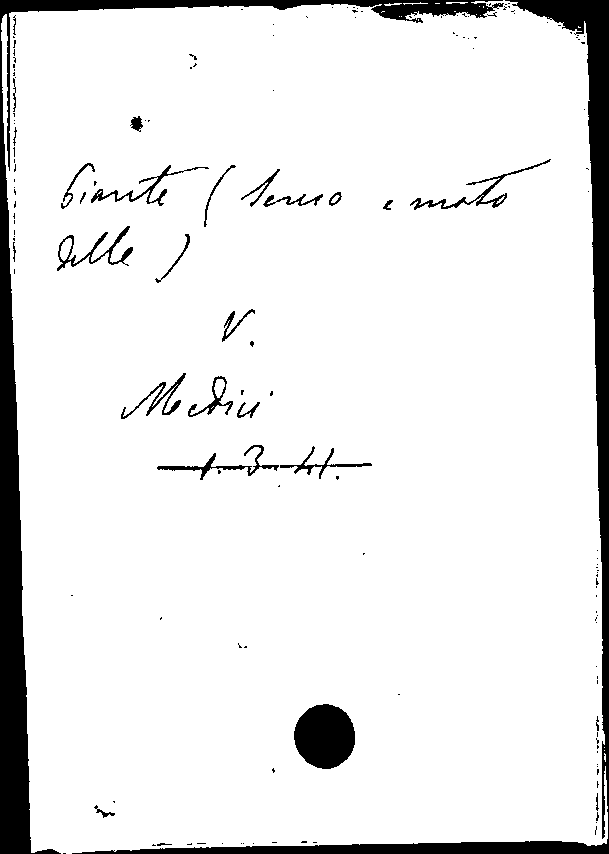 Piante (senso e moto
delle)
V.
Medici
1.3.41.